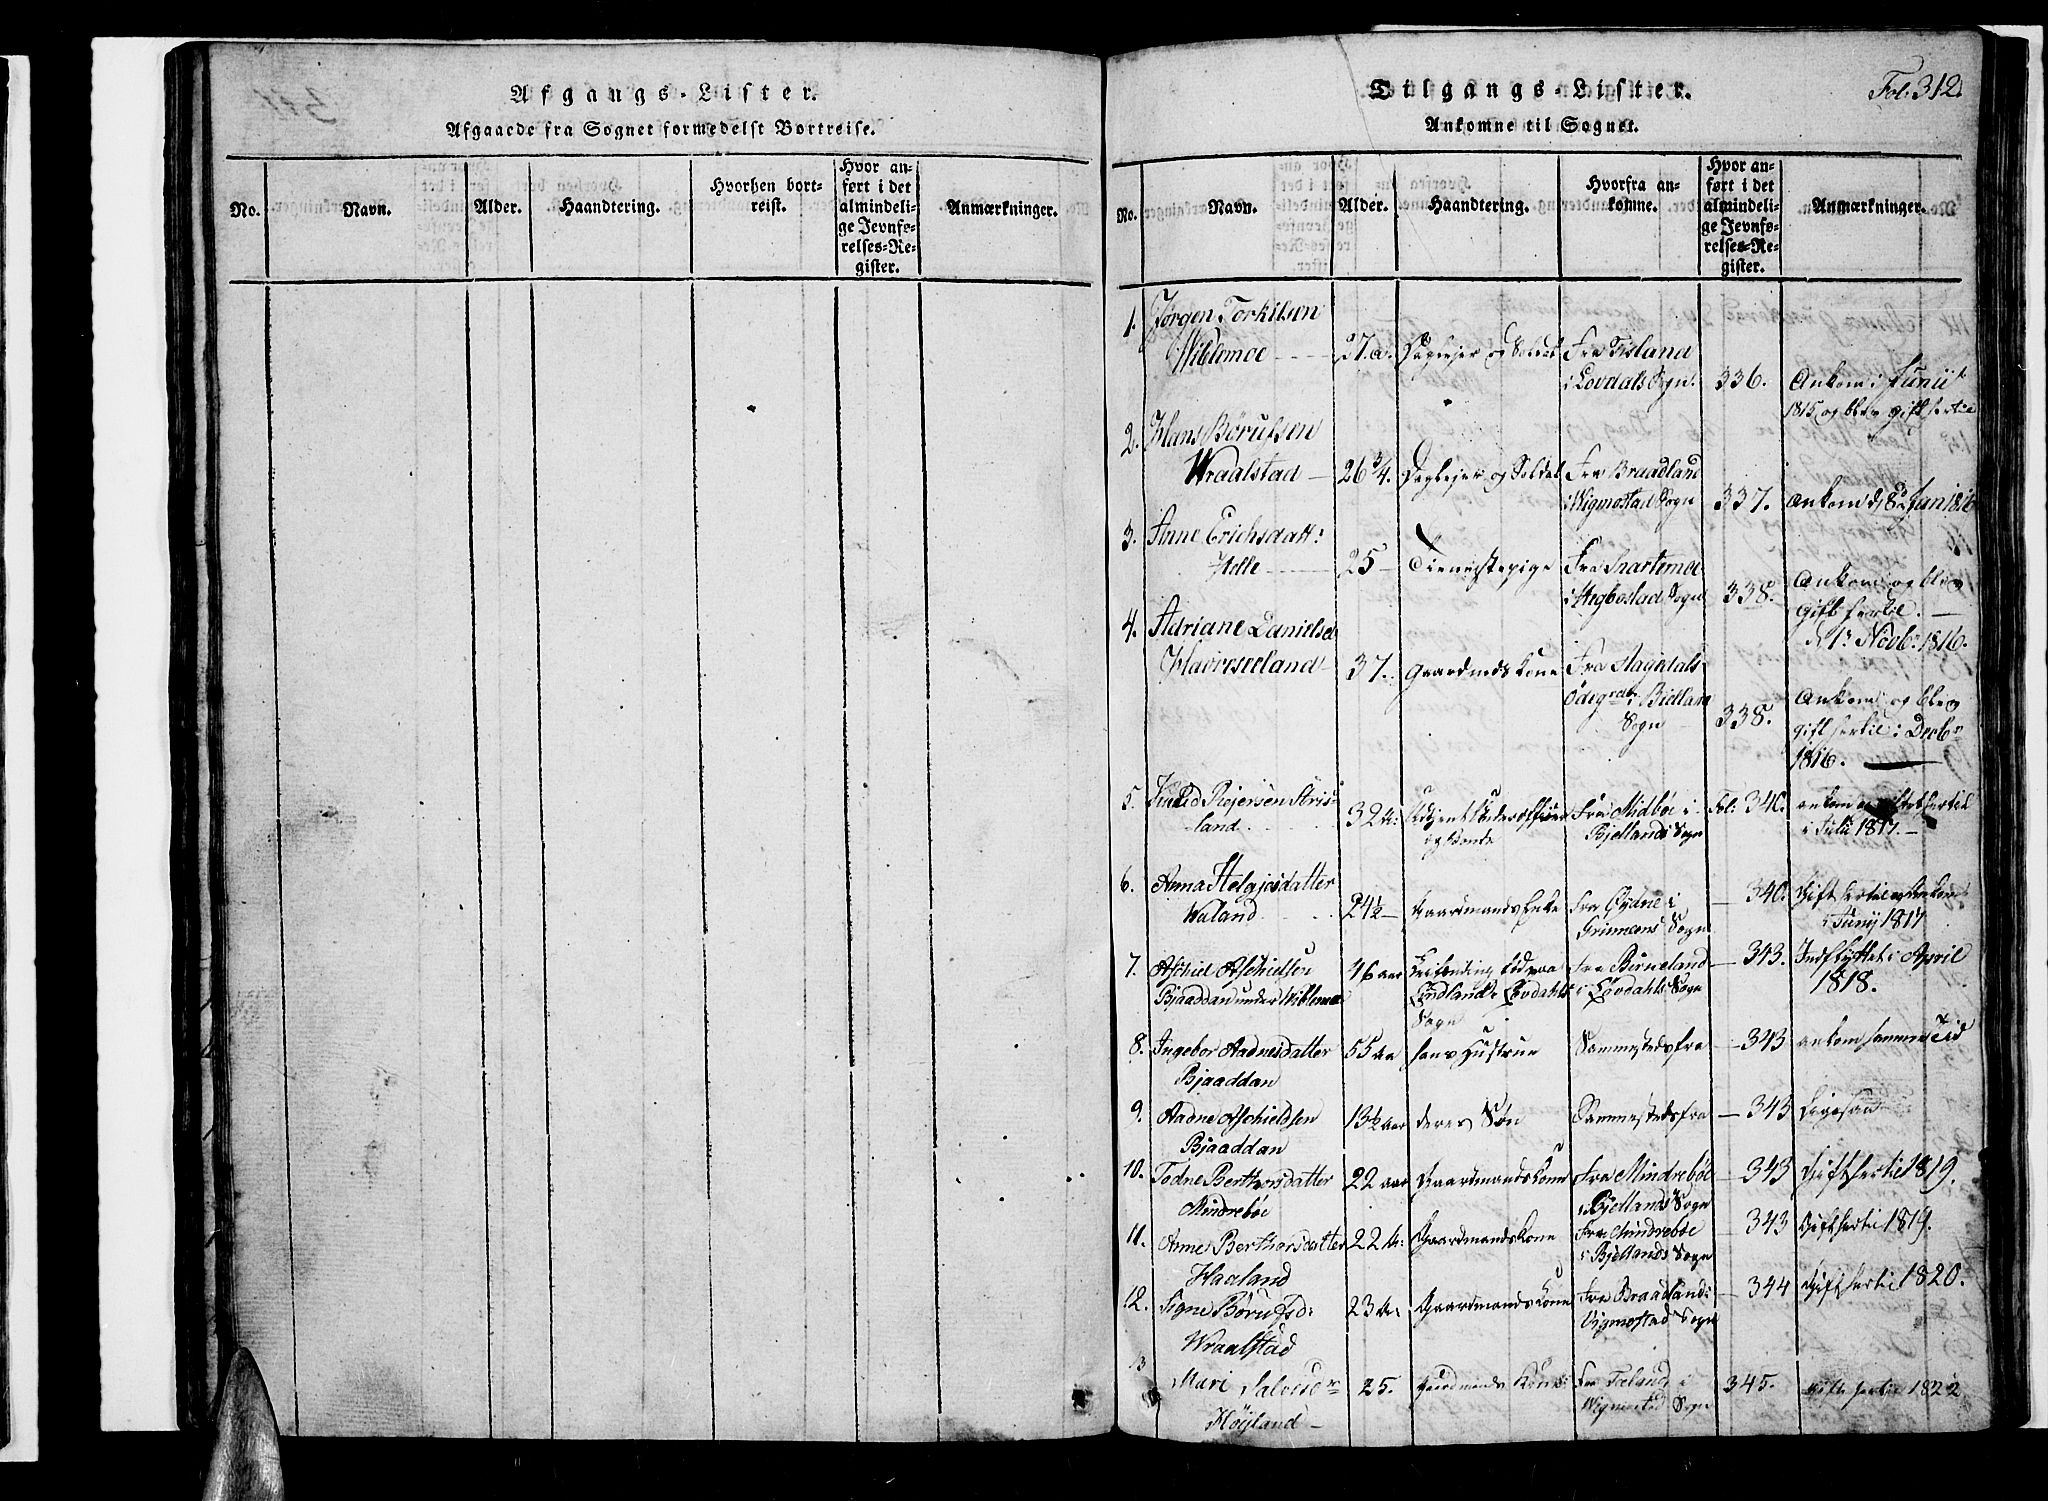 Afgangs-Lister.
Afgaaede fra Sognet formedelst Bortreise.
No.
Navn.
Alder.
Haandtering.
Hvorhen bort-
reist.
Hvor an-
ført i det
almindeli-
ge Jevnfø-
relses-Re-
gister.
Anmærkninger.
Tilgangs-Lister.
Fol. 312.
Ankomne til Sognet.
No.
Navn.
Alder.
Haandtering.
Hvorfra an-
komne.
Hvor an-
ført i det
almindeli-
ge Jevnfø-
relses-Re-
gister.
Anmærkninger.
1. Jørgen Torkilsen
Wiblemoe 27. a. Daglejer og Soldat Fra
i Lovdals Sogn. 336. Ankom i Junii
1815 og blev gift hertil
2. Hans Børufsen
Wraalstad 26 3/4. Daglejer og Soldat Fra Braadland
i Wigmostad Sogn 337. Ankom d. Juni 1816
3. Anne Erichsdatt:
Helle 25 Tienestepige Fra Snartemoe
i Hegbostad Sogn 338. Ankom og blev
gift hertil.
d. 1. Novbr. 1816.
4. Adriane Danielsd
Haaverseland 37. Gaardmands Kone Fra
i Bielland
Sogn 338. Ankom og blev
gift hertil i Decbr
1816.
5. Rejersen Stris-
land 32 Underofficer
og Bonde Fra Midbøe i
Bjellands Sogn Fol: 340. ankom og hertil
i Julii 1817.
6. Anna Helgjesdatter
Waland 24 1/2 Gaardmands Enke Fra Øydne i
Grinnems Sogn 340. Gift hertil og Ankom
i Juny 1817
7. Aschiel Aschielsen
Bjaaddan under Wiblemoe 46 aar fød paa
i Løvdahls
Sogn Fra Birkeland
i Løvdahls Sogn 343. Indflyttet i April
1818.
8. Ingebor Aadnesdatter
Bjaaddan 55 aa hans Hustrue Sammestedsfra 343 ankom samme Tid
9. Aadne Aschieldsen
Bjaaddan 13 1/2 aar deres Søn Sammestedsfra 343 Ligesaa
10. Todne Berthorsdatter
Mindrebøe 22 aar Gaardmands Kone Fra Mindrebøe
i Bjellands Sogn 343 Gift hertil 1819.
11. Anne Berthorsdatter
Haaland 22 A: Gaardmands Kone Fra Mindrebøe
i Bjellands Sogn 343 Gift hertil 1819.
12. Signe Børufsd:
Wraalstad 23 A: Gaardmands Kone Fra Braadland i
Vigmostad Sogn 344 Gift hertil 1820.
13 Mari Salvesdr
Høyland 25. Gaardmands Kone Fra i
Wigmostad Sogn 345. gift hertil 1822